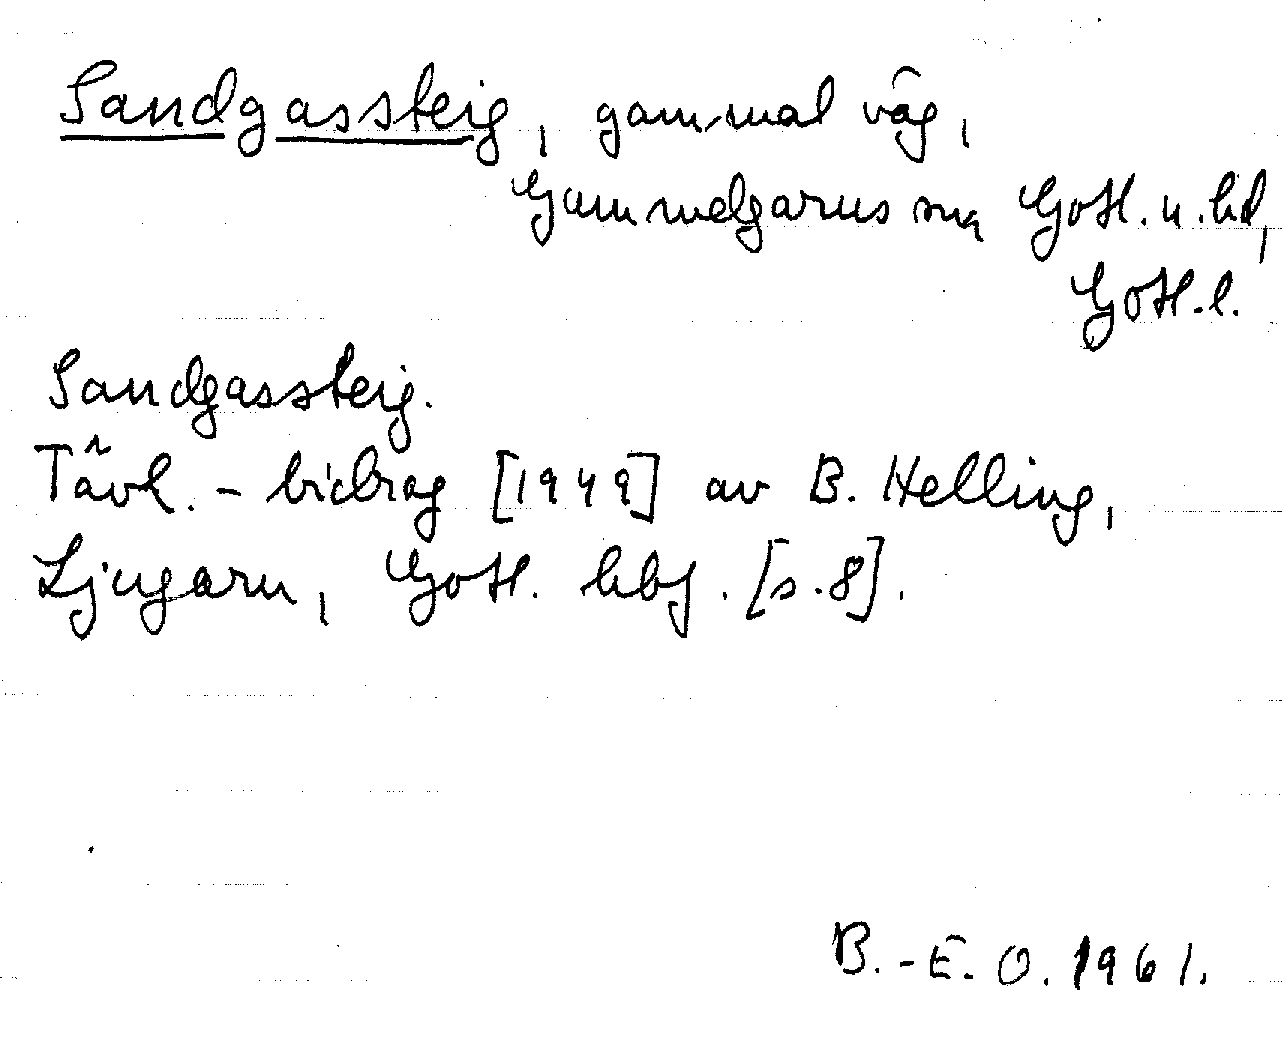 Sandgassteig, gammal väg,
Gammelgarns sn Gotl. n. hd,
Gotl. l.
Sandgassteig.
Tävl. - bidrag [1949] av B. Helling,
Ljugarn, Gotl. hbf. [s. 8].
B.-E. O. 1961.